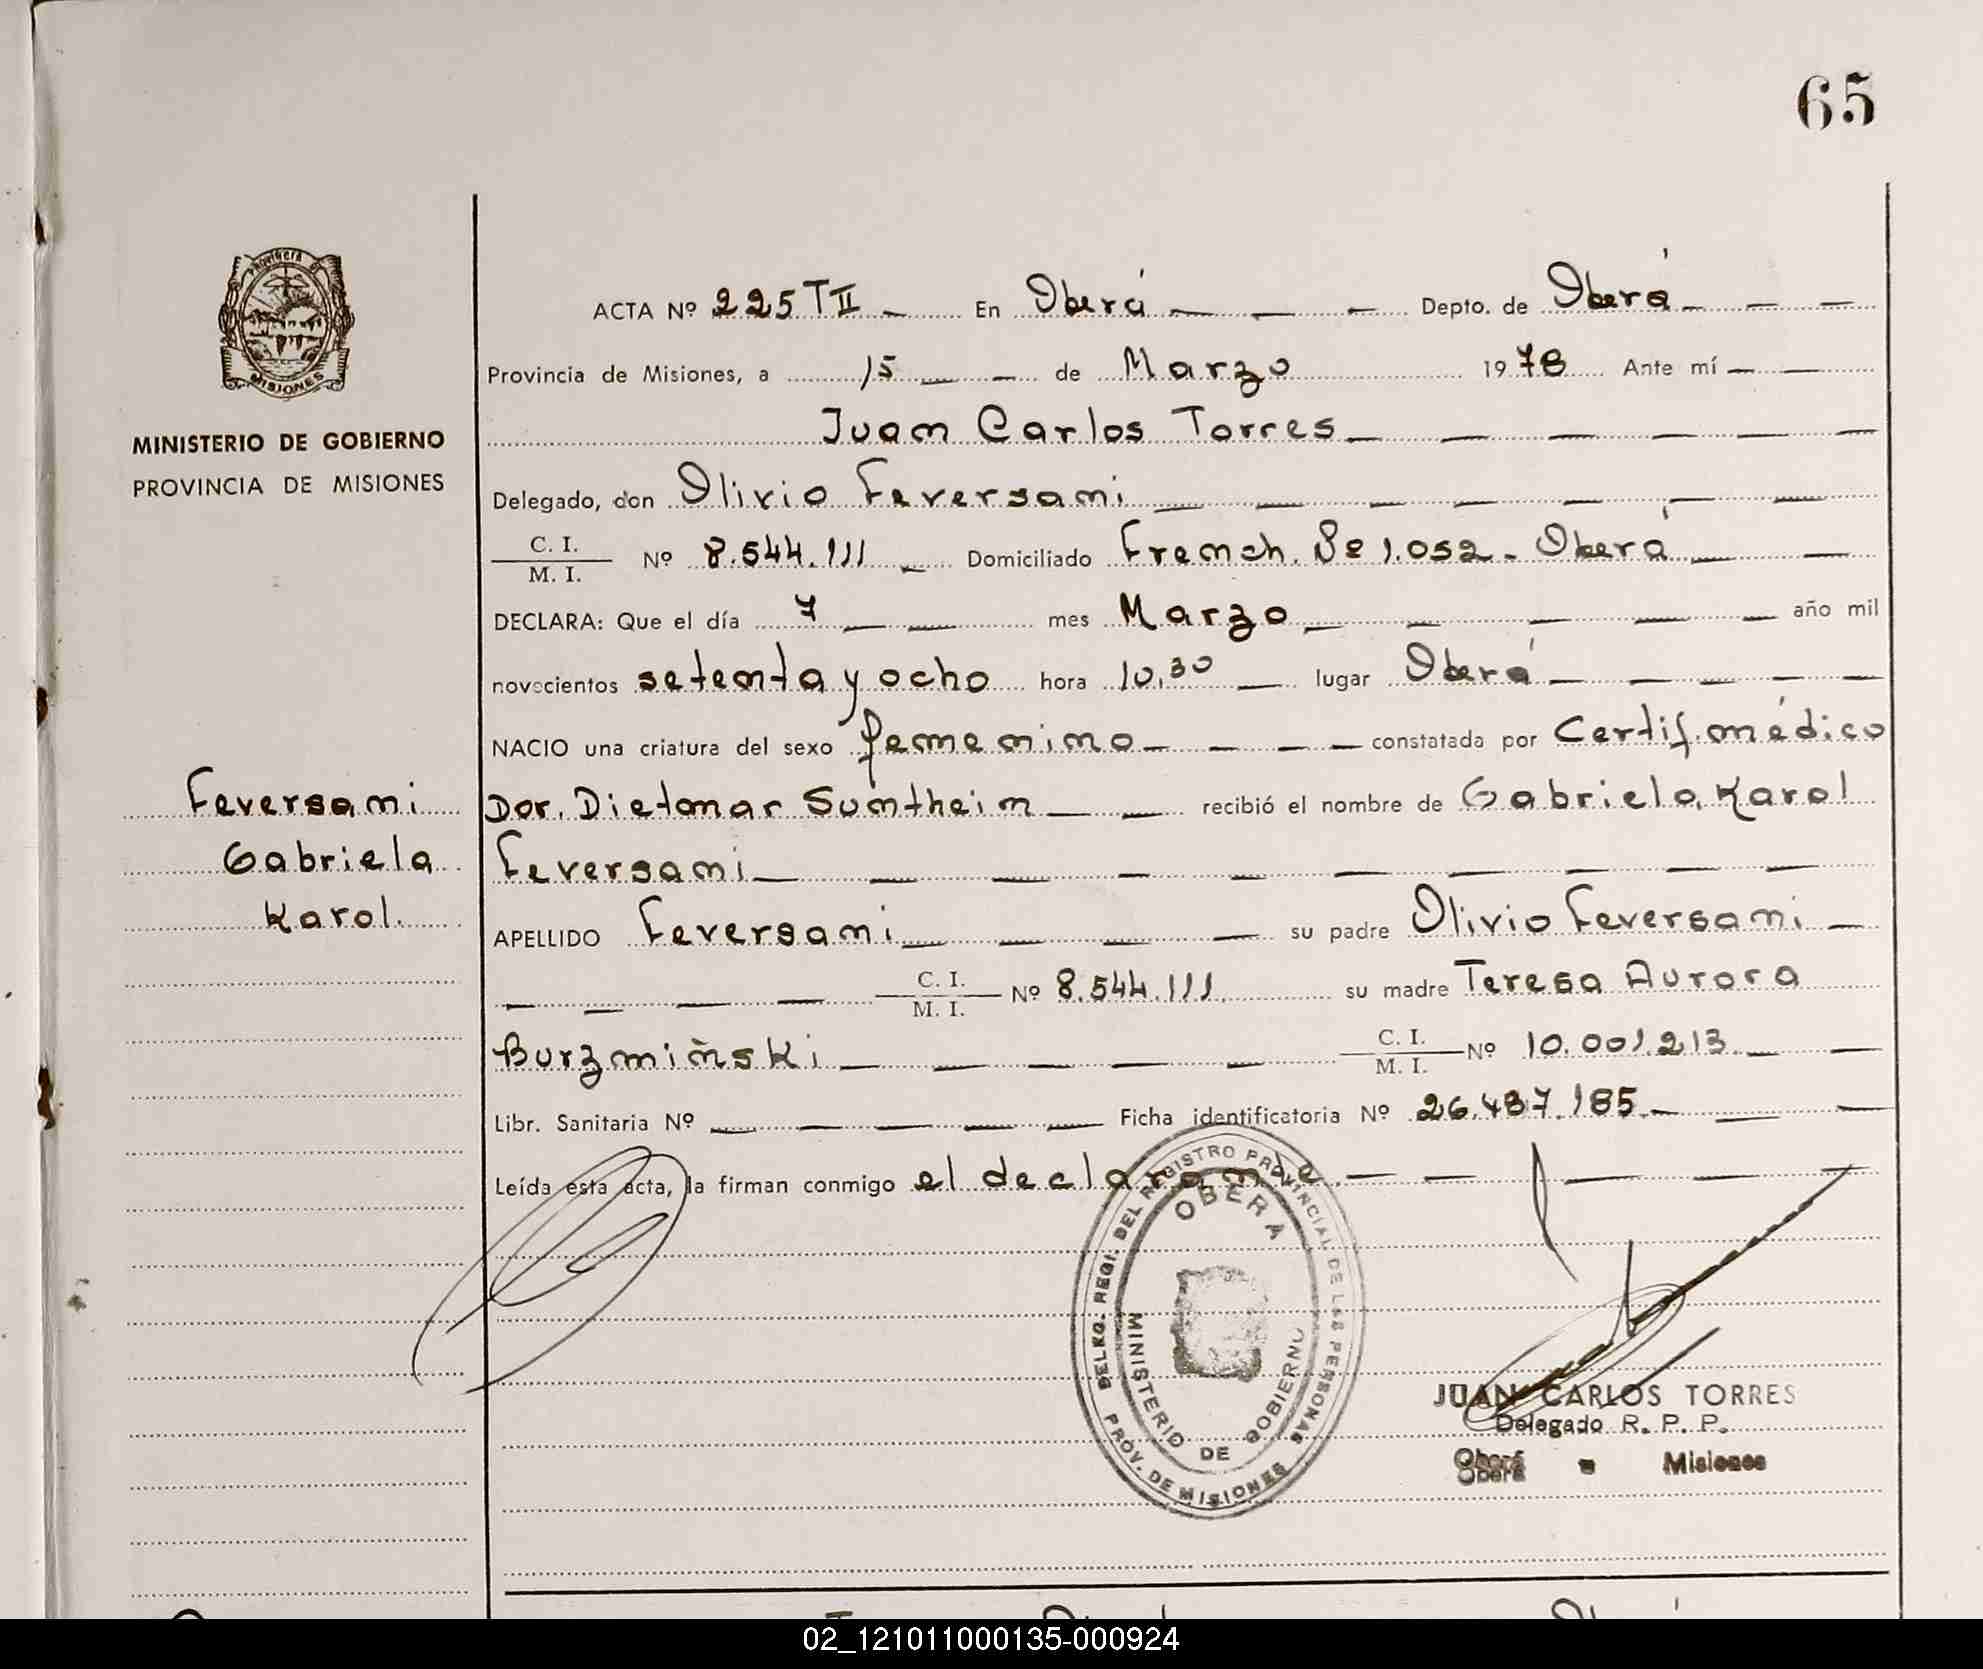 65
PROVINCIA DE
MISIONES
MINISTERIO DE GOBIERNO
PROVINCIA DE MISIONES
Feversani
Gabriela
Karol.
ACTA Nº 225 TII En Oberá Depto. de Oberá
Provincia de Misiones, a 15 de Marzo 1978 Ante mí
Juan Carlos Torres
Delegado, don Olivio Feversani
C. I. / M. I. Nº 8.544.111 Domiciliado French. Nº 1.052 - Oberá
DECLARA: Que el día 7 mes Marzo año mil
novecientos setenta y ocho hora 10,30 lugar Oberá
NACIO una criatura del sexo femenino constatada por Certif. médico
Dor. Dietmar Sumtheim recibió el nombre de Gabriela Karol
Feversani
APELLIDO Feversani su padre Olivio Feversani
C. I. / M. I. Nº 8.544.111 su madre Teresa Aurora
Burzmiñski C. I. / M. I. Nº 10.001.213
Libr. Sanitaria Nº Ficha identificatoria Nº 26.437.185
Leída esta acta, la firman conmigo el declarante.
DELEG. REGT. DEL REGISTRO PROVINCIAL DE LAS PERSONAS
OBERA
MINISTERIO DE GOBIERNO
PROV. DE MISIONES
JUAN CARLOS TORRES
Delegado R. P. P.
Oberá - Misiones
02_121011000135-000924